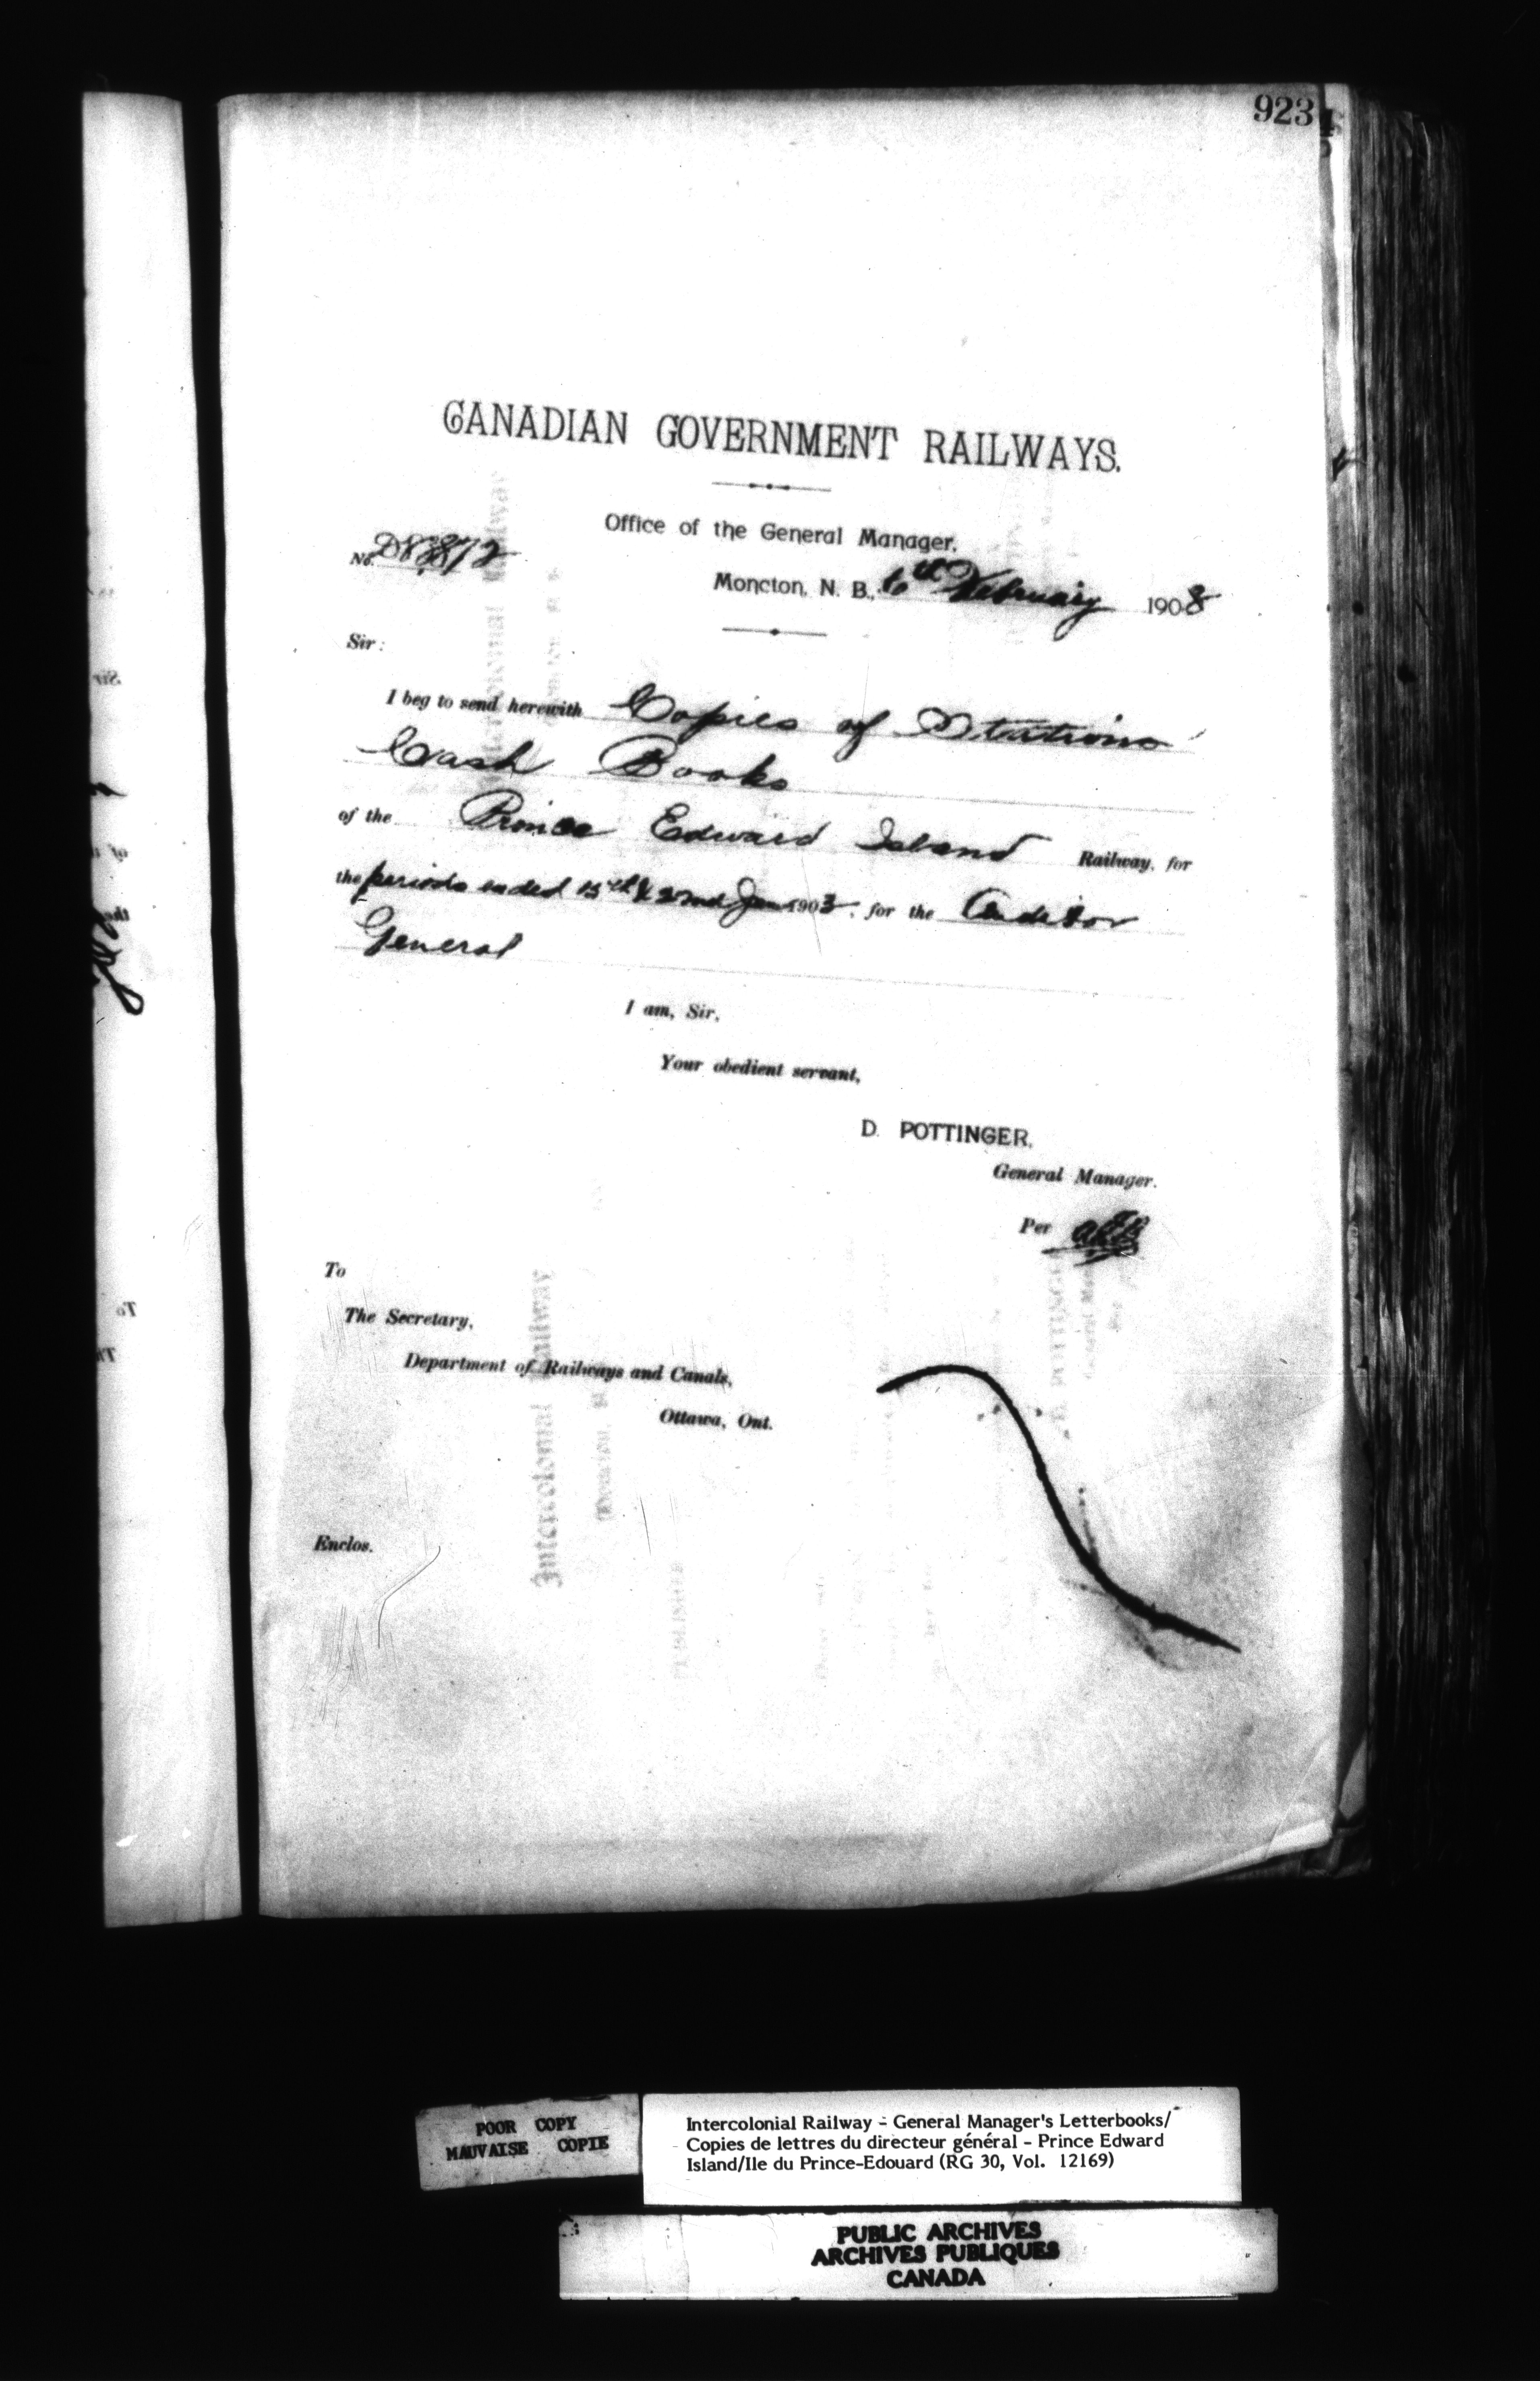 923
CANADIAN GOVERNMENT RAILWAYS.
Office of the General Manager,
No.
Moncton, N. B., 10th February 1903
Sir:
I beg to send herewith Copies of Stations
Cash Books
of the Prince Edward Island Railway, for
the periods ended 15th & 22nd Jan 1903, for the Auditor
General
I am, Sir,
Your obedient servant,
D. POTTINGER,
General Manager.
Per
To
The Secretary,
Department of Railways and Canals,
Ottawa, Ont.
Enclos.
POOR COPY
MAUVAISE COPIE
Intercolonial Railway - General Manager's Letterbooks/
Copies de lettres du directeur général - Prince Edward
Island/Ile du Prince-Edouard (RG 30, Vol. 12169)
PUBLIC ARCHIVES
ARCHIVES PUBLIQUES
CANADA